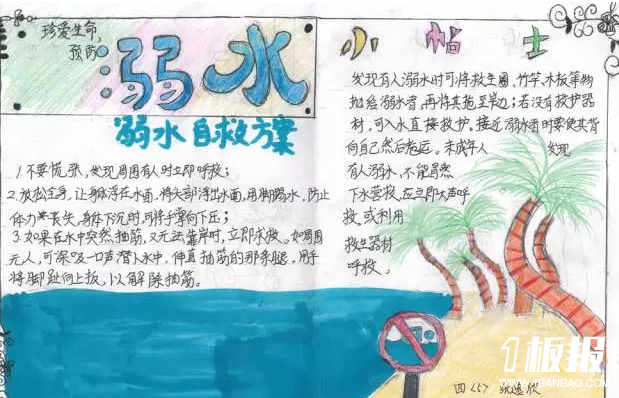 珍爱生命,
预防
溺水
溺水自救方案
1.不要慌张,发现周围有人时立即呼救;
2.放松全身,让身体浮在水面,将头部浮出水面,用脚踢水,防止
体力丧失,身体下沉时,可将手掌向下压;
3.如果在水中突然抽筋,又无法靠岸时,立即求救。如周围
无人,可深吸一口气潜入水中,伸直抽筋的那条腿,用手
将脚趾向上扳,以解除抽筋。
小帖士
发现有人溺水时可将救生圈、竹竿、木板等物
抛给溺水者,再将其拖至岸边;若没有救护器
材,可入水直接救护。接近溺水者时要使其背
向自己然后拖运。未成年人发现
有人溺水,不能冒然
下水营救,应立即大声呼
救,或利用
救生器材
呼救。
四(5)
1板报
WWW.1BANBAO.COM